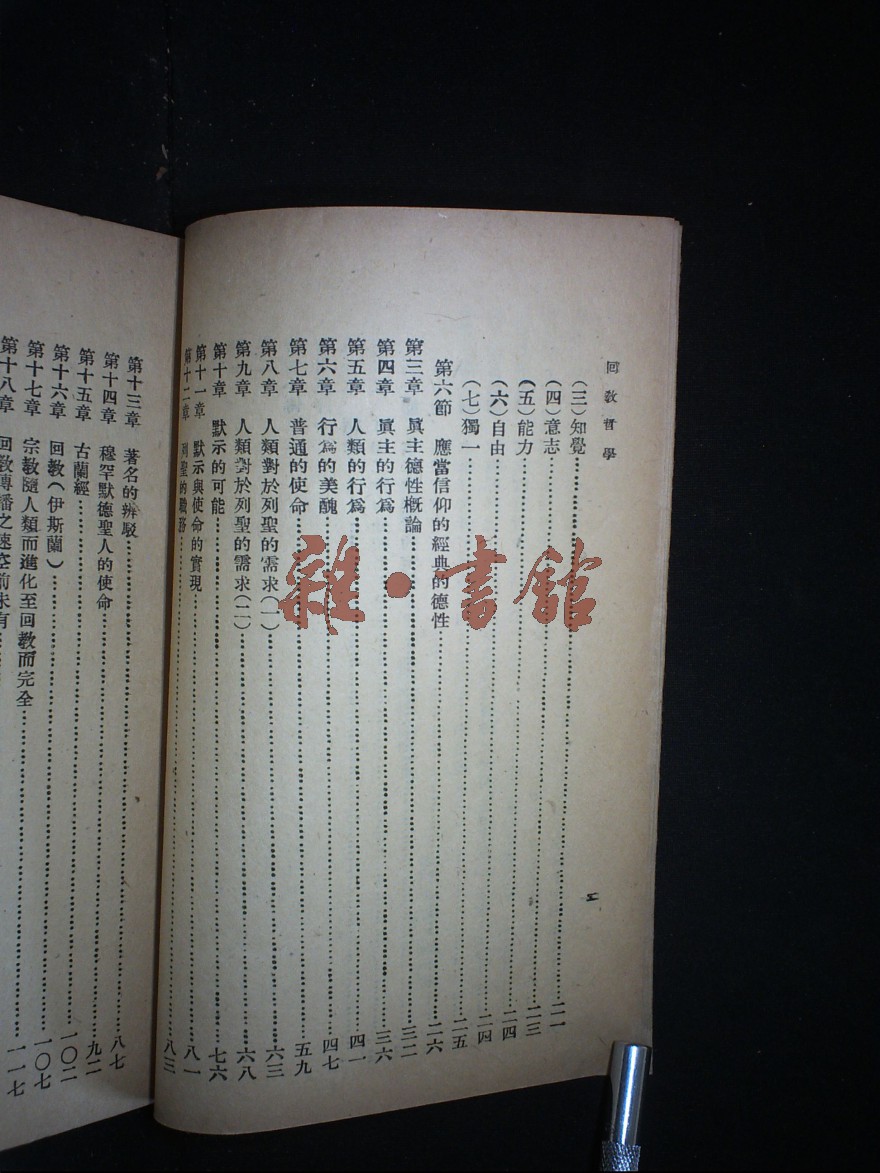 回教哲學
(三)知覺……二一
(四)意志……二三
(五)能力……二四
(六)自由……二四
(七)獨一……二五
第六節 應當信仰的經典的德性……二六
第三章 眞主德性槪論……三二
第四章 眞主的行爲……三六
第五章 人類的行爲……四一
第六章 行爲的美醜……四七
第七章 普通的使命……五九
第八章 人類對於列聖的需求(一)……六三
第九章 人類對於列聖的需求(二)……六八
第十章 默示的可能……七六
第十一章 默示與使命的實現……八一
第十二章 列聖的職務……八三
第十三章 著名的辨駁……八七
第十四章 穆罕默德聖人的使命
第十五章 古蘭經……九二
第十六章 回教(伊斯蘭)……一〇二
第十七章 宗敎隨人類而進化至回敎而完全……一〇七
第十八章 回敎傳播之速空前未有……一一七
雜·書館